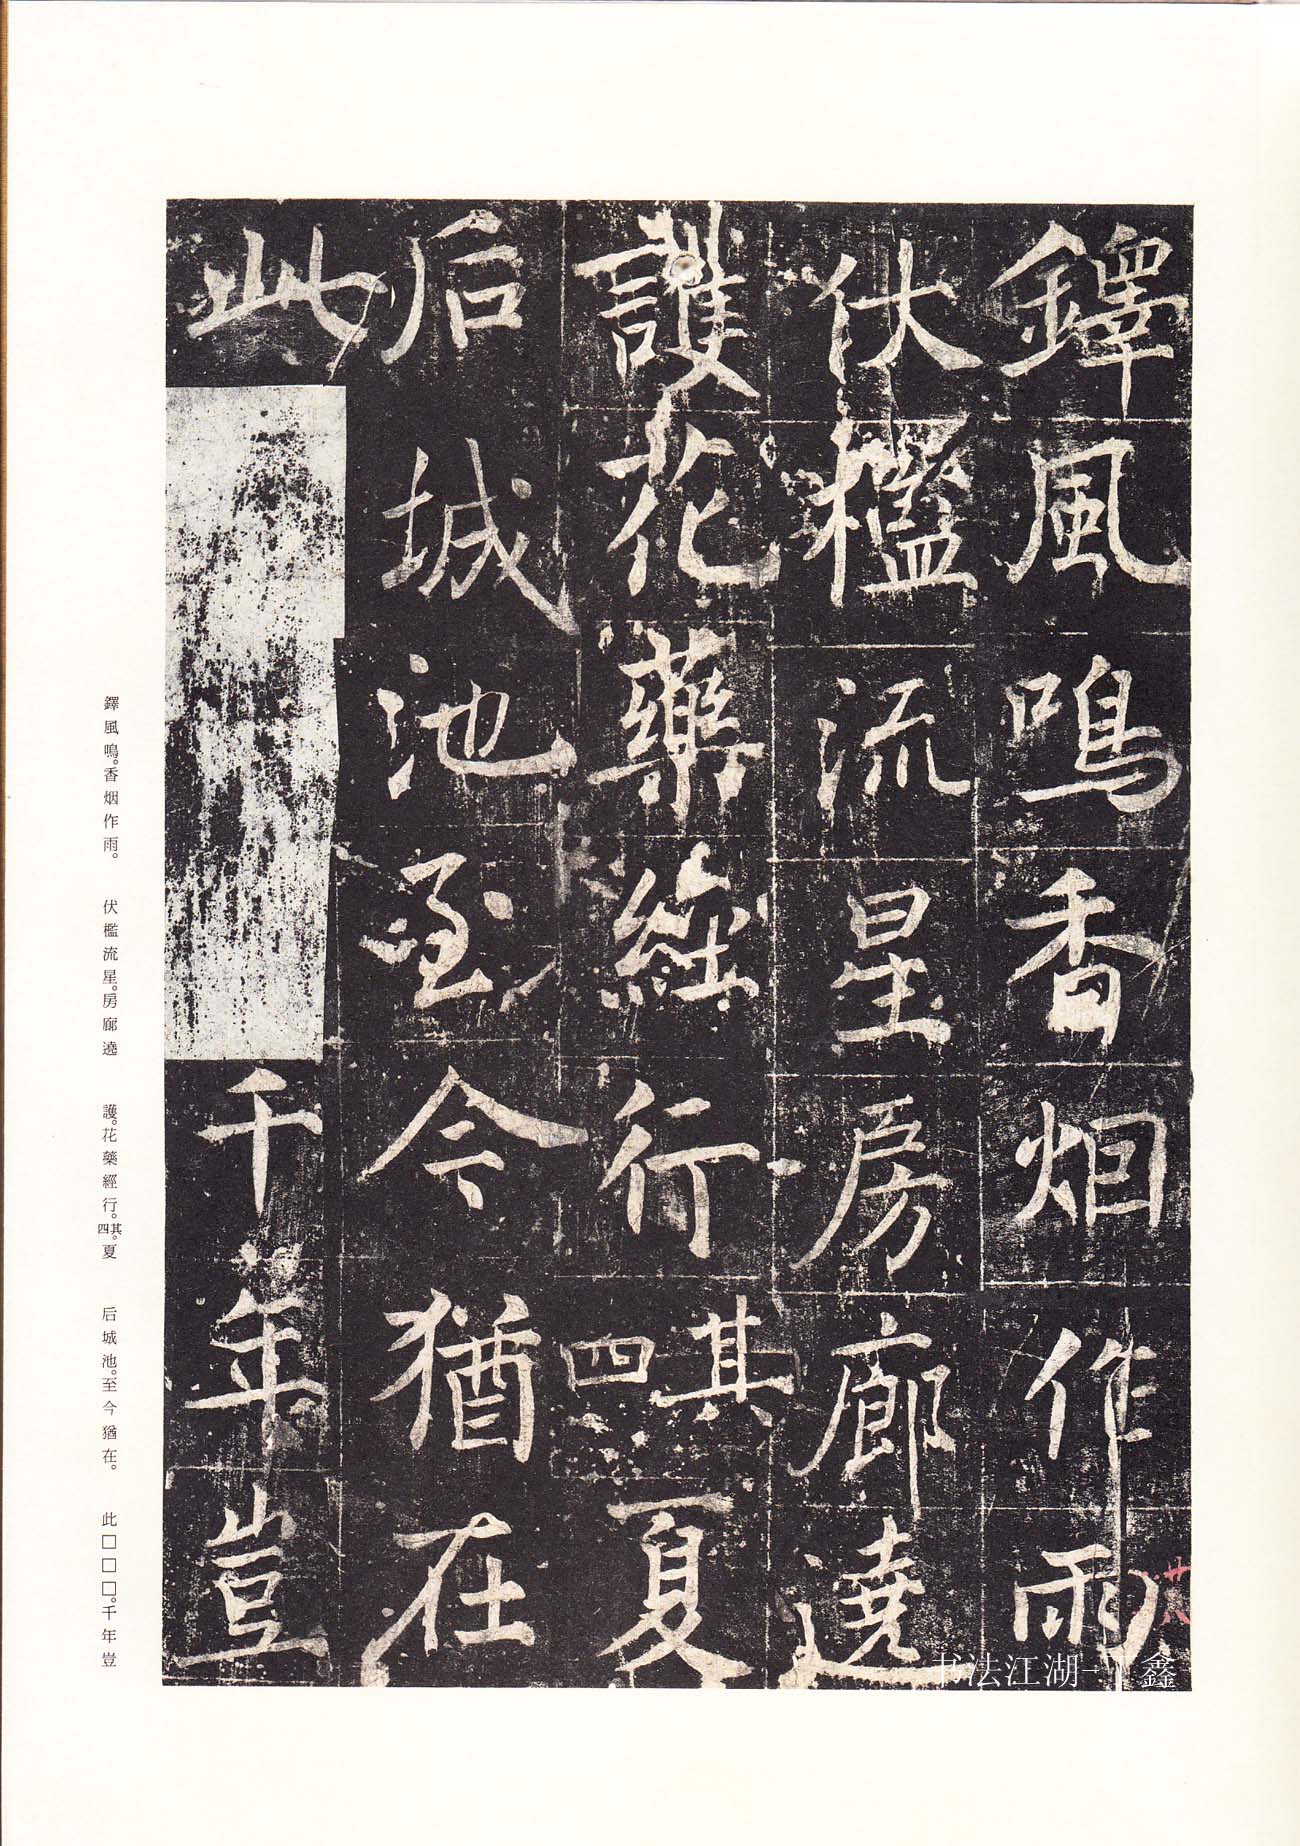 鐸風鳴香烟作雨
伏檻流星房廊遶
護花藥經行其四夏
后城池至今猶在
此千年豈
鐸風鳴。香烟作雨。 伏檻流星。房廊遶 護。花藥經行。其四。夏 后城池。至今猶在。 此□□□。千年豈
书法江湖-丁鑫